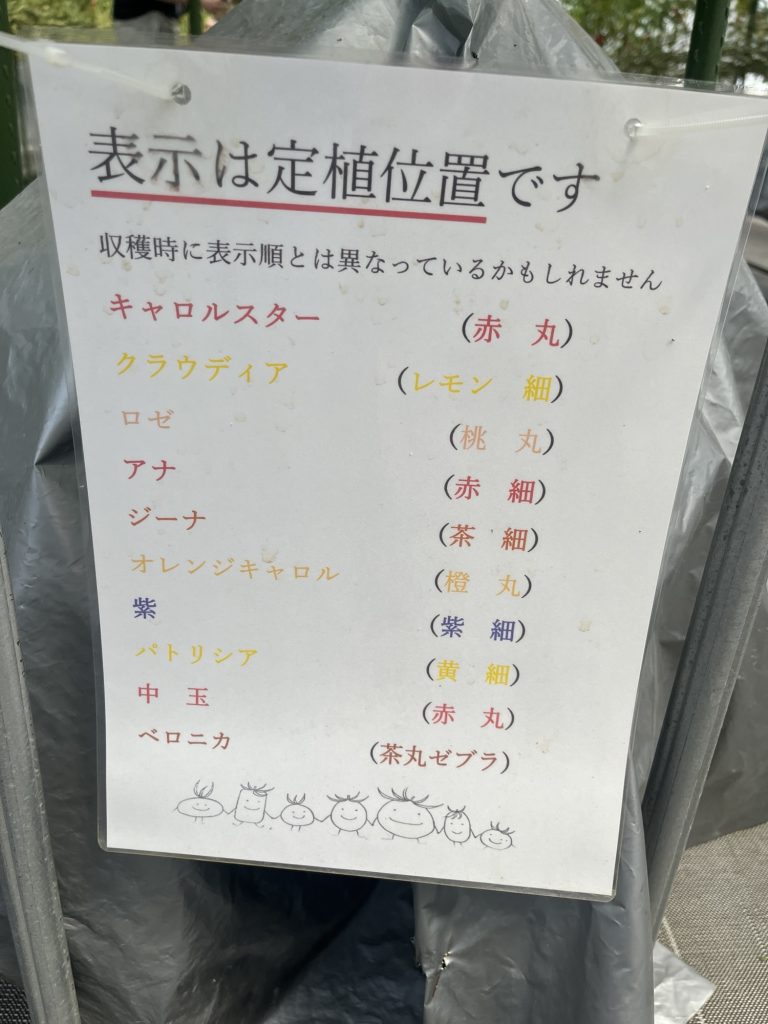 表示は定植位置です
収穫時に表示順とは異なっているかもしれません
キャロルスター (赤 丸)
クラウディア (レモン 細)
ロゼ (桃 丸)
アナ (赤 細)
ジーナ (茶 細)
オレンジキャロル (橙 丸)
紫 (紫 細)
パトリシア (黄 細)
中 玉 (赤 丸)
ベロニカ (茶丸ゼブラ)